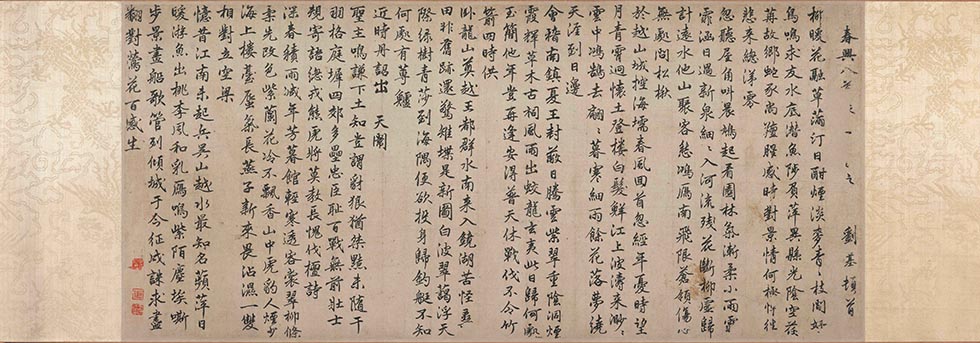 春興八首 之一 之 劉基頓首
柳暖花融草滿汀日酣煙淡麥青枝間好
鳥鳴求友水底潛魚陟負萍異縣光陰空荏
苒故鄉蛇豕尚羶腥感時對景情何極忖往
悲來總涕零
忽聽屋角叫晨鳩起看園林氣漸柔小雨霏
霏涵日過新泉細細入河流殘花斷柳虛歸
計遠水他山聚客愁鴻雁南飛限蒼嶺傷心
無處問松楸
於越山城控海壖春風回首忽經年憂時望
月青霄迥懷土登樓白髮鮮江上波濤來渺渺
雲中鴻鵠去翩翩暮寒細雨餘花落夢繞
天涯到日邊
會稽南鎮夏王封蔽日騰雲紫翠重陰洞煙
霞輝草木古祠風雨出蛟龍玄夷此日歸何處
玉簡他年豈再逢安得普天休戰伐不令竹
箭四時供
臥龍山奠越王都群水南來入鏡湖苦怪
田非舊跡還驚雉堞是新圖白波翠藹浮天
際綠樹青莎到海隅便欲投身歸釣艇不知
何處有蓴鱸
近時丹詔出 天閽
聖主鳴謙下土知豈謂豺狼猶桀黠未隨干
羽格庭墀四郊多壘忠臣恥百戰無前壯士
期寄語總戎熊虎將莫教長愧伐檀詩
深春積雨減年芳暮館輕寒透客裳翠柳條
柔先改色紫蘭花冷不飄香山中虎豹人煙少
海上樓臺蜃氣長燕子新來畏沾濕一雙
相對立空梁
憶昔江南未起兵吳山越水最知名蘋萍日
暖游魚出桃李風和乳燕鳴紫陌塵埃嘶
步景畫船歌管到傾城于今征戍誅求盡
翻對鶯花百感生